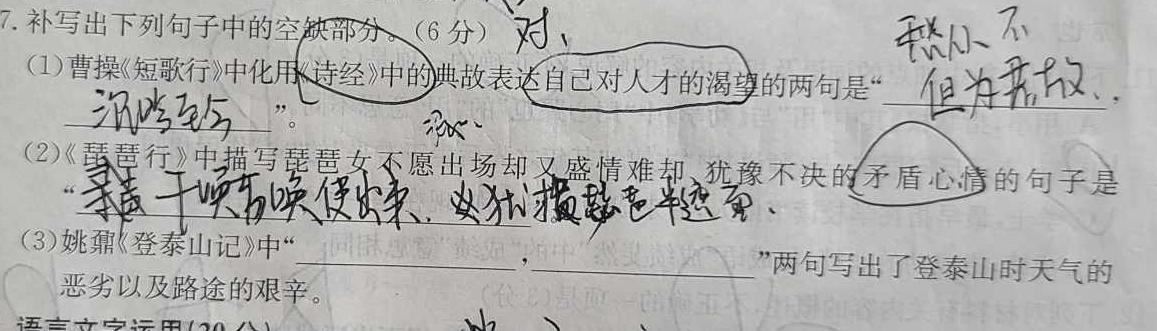 7.补写出下列句子中的空缺部分。(6分) 对、
(1)曹操《短歌行》中化用《诗经》中的典故表达自己对人才的渴望的两句是“ 但为君故、,
沉吟至今 ”。
(2)《琵琶行》中描写琵琶女不愿出场却又盛情难却、犹豫不决的矛盾心情的句子是
“ 千唤万唤使出来、 琶半遮面、
(3)姚鼐《登泰山记》中“ , ”两句写出了登泰山时天气的
恶劣以及路途的艰辛。
语言文字运用(20分)